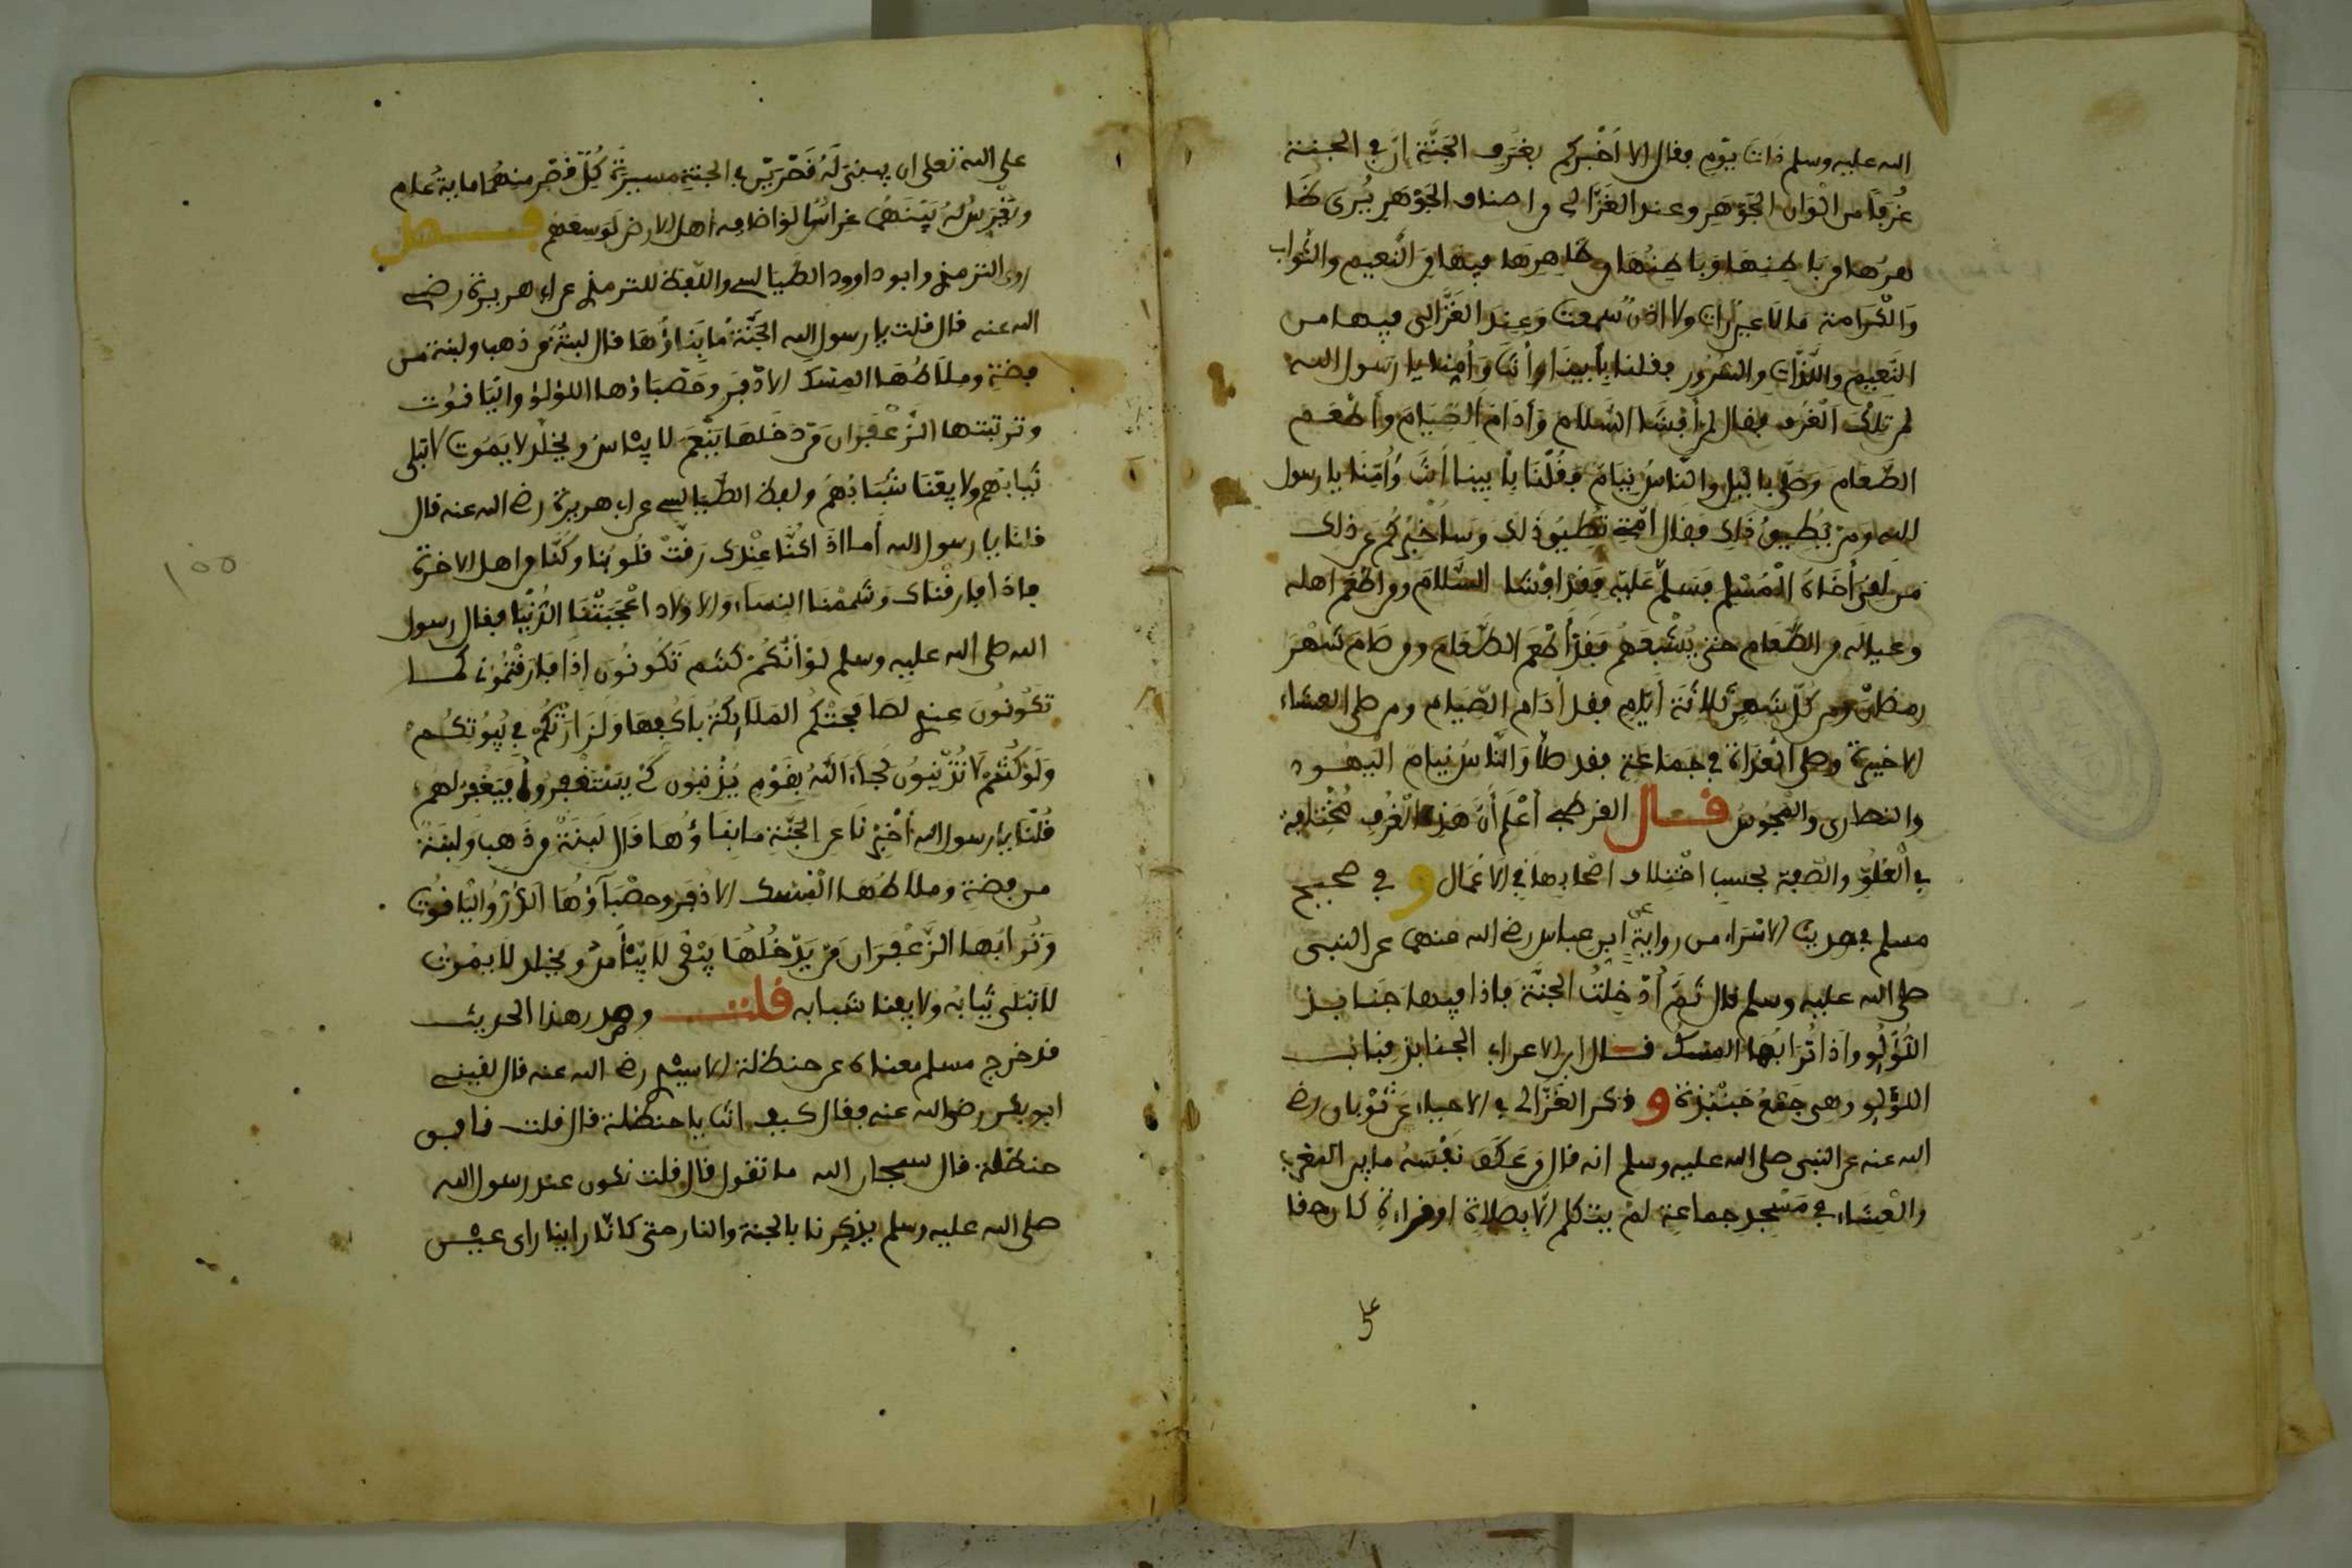 الله عليه وسلم ذات يوم فقال الا أخبركم بغرف الجنة ان في الجنة
غرفا من الوان الجوهر وعند الغزالي من اصناف الجوهر يرى ظا
هرها من باطنها وباطنها من ظاهرها فيها من النعيم والثواب
والكرامة ما لا عين رات ولا اذن سمعت وعند الغزالي فيها من
النعيم واللذات والسرور فقلنا بأبينا أنت وأمنا يا رسول الله
لمن تلك الغرف فقال لمن أفشا السلام وأدام الصيام وأطعم
الطعام وصلى باليل والناس نيام فقلنا بأبينا أنت وأمنا يا رسول
الله ومن يطيق ذلك فقال امتي تطيق ذلك وساخبركم عن ذلك
من لقي أخاه المسلم فسلم عليه فقد افشا السلام ومن اطعم اهله
وعياله من الطعام حتى يشبعهم فقد أطعم الطعام ومن صام شهر
رمضان ومن كل شهر ثلاثة أيام فقد أدام الصيام ومن صلى العشاء
الاخيرة وصلى الغداة في جماعة فقد صلى والناس نيام اليهود
والنصارى والمجوس قال القرطبي أعلم أن هذه الغرف مختلفة
في العلو والصفة بحسب اختلاف اصحابها في الاعمال و في صحيح
مسلم في حديث الاسراء من رواية ابن عباس رضي الله عنهما عن النبي
صلى الله عليه وسلم قال ثم أدخلت الجنة فاذا فيها جنابذ
اللؤلؤ واذا ترابها المسك قال ابن الاعرابي الجنابذ قباب
اللؤلؤ وهي جمع جنبذة و ذكر الغزالي في الاحياء عن ثوبان رضي
الله عنه عن النبي صلى الله عليه وسلم انه قال من عكف نفسه ما بين المغرب
والعشاء في مسجد جماعة لم يتكلم الا بصلاة او قراءة كان حقا
على
على الله تعلى ان يبنى له قصرين في الجنة مسيرة كل قصر منهما ماية عام
ويغرس له بينهما غراسا لو اضافه أهل الارض لوسعهم فصل
روى الترمذي وابو داوود الطيالسي واللفظ للترمذي عن ابي هريرة رضي
الله عنه قال قلت يا رسول الله الجنة ما بناؤها قال لبنة من ذهب ولبنة من
فضة وملاطها المسك الاذفر وحصباؤها اللؤلؤ والياقوت
وتربتها الزعفران من دخلها ينعم لا يباس ويخلد لا يموت لا تبلى
ثيابهم ولا يفنا شبابهم ولفظ الطيالسي عن ابي هريرة رضي الله عنه قال
قلنا يا رسول الله أما اذا كنا عندك رقت قلوبنا وكنا من اهل الاخرة
فاذا فارقناك وشممنا النساء والاولاد اعجبتنا الدنيا فقال رسول
الله صلى الله عليه وسلم لو أنكم كنتم تكونون إذا فارقتموني كما
تكونون عندي لصافحتكم الملائكة بأكفها ولزارتكم في بيوتكم
ولو كنتم لا تذنبون لجاء الله بقوم يذنبون كي يستغفروا فيغفر لهم
قلنا يا رسول الله أخبرنا عن الجنة ما بناؤها قال لبنة من ذهب ولبنة
من فضة وملاطها المسك الاذفر وحصباؤها الدر والياقوت
وترابها الزعفران من يدخلها يبقى لا يبأس ويخلد لا يموت
لا تبلى ثيابه ولا يفنا شبابه قلت وصدر هذا الحديث
قد خرج مسلم معناه عن حنظلة الاسيدي رضي الله عنه قال لقيني
ابو بكر رضي الله عنه فقال كيف انت يا حنظلة قال قلت نافق
حنظلة قال سبحان الله ما تقول قال قلت نكون عند رسول الله
صلى الله عليه وسلم يذكرنا بالجنة والنار حتى كانا راينا راى عين
١٥٥